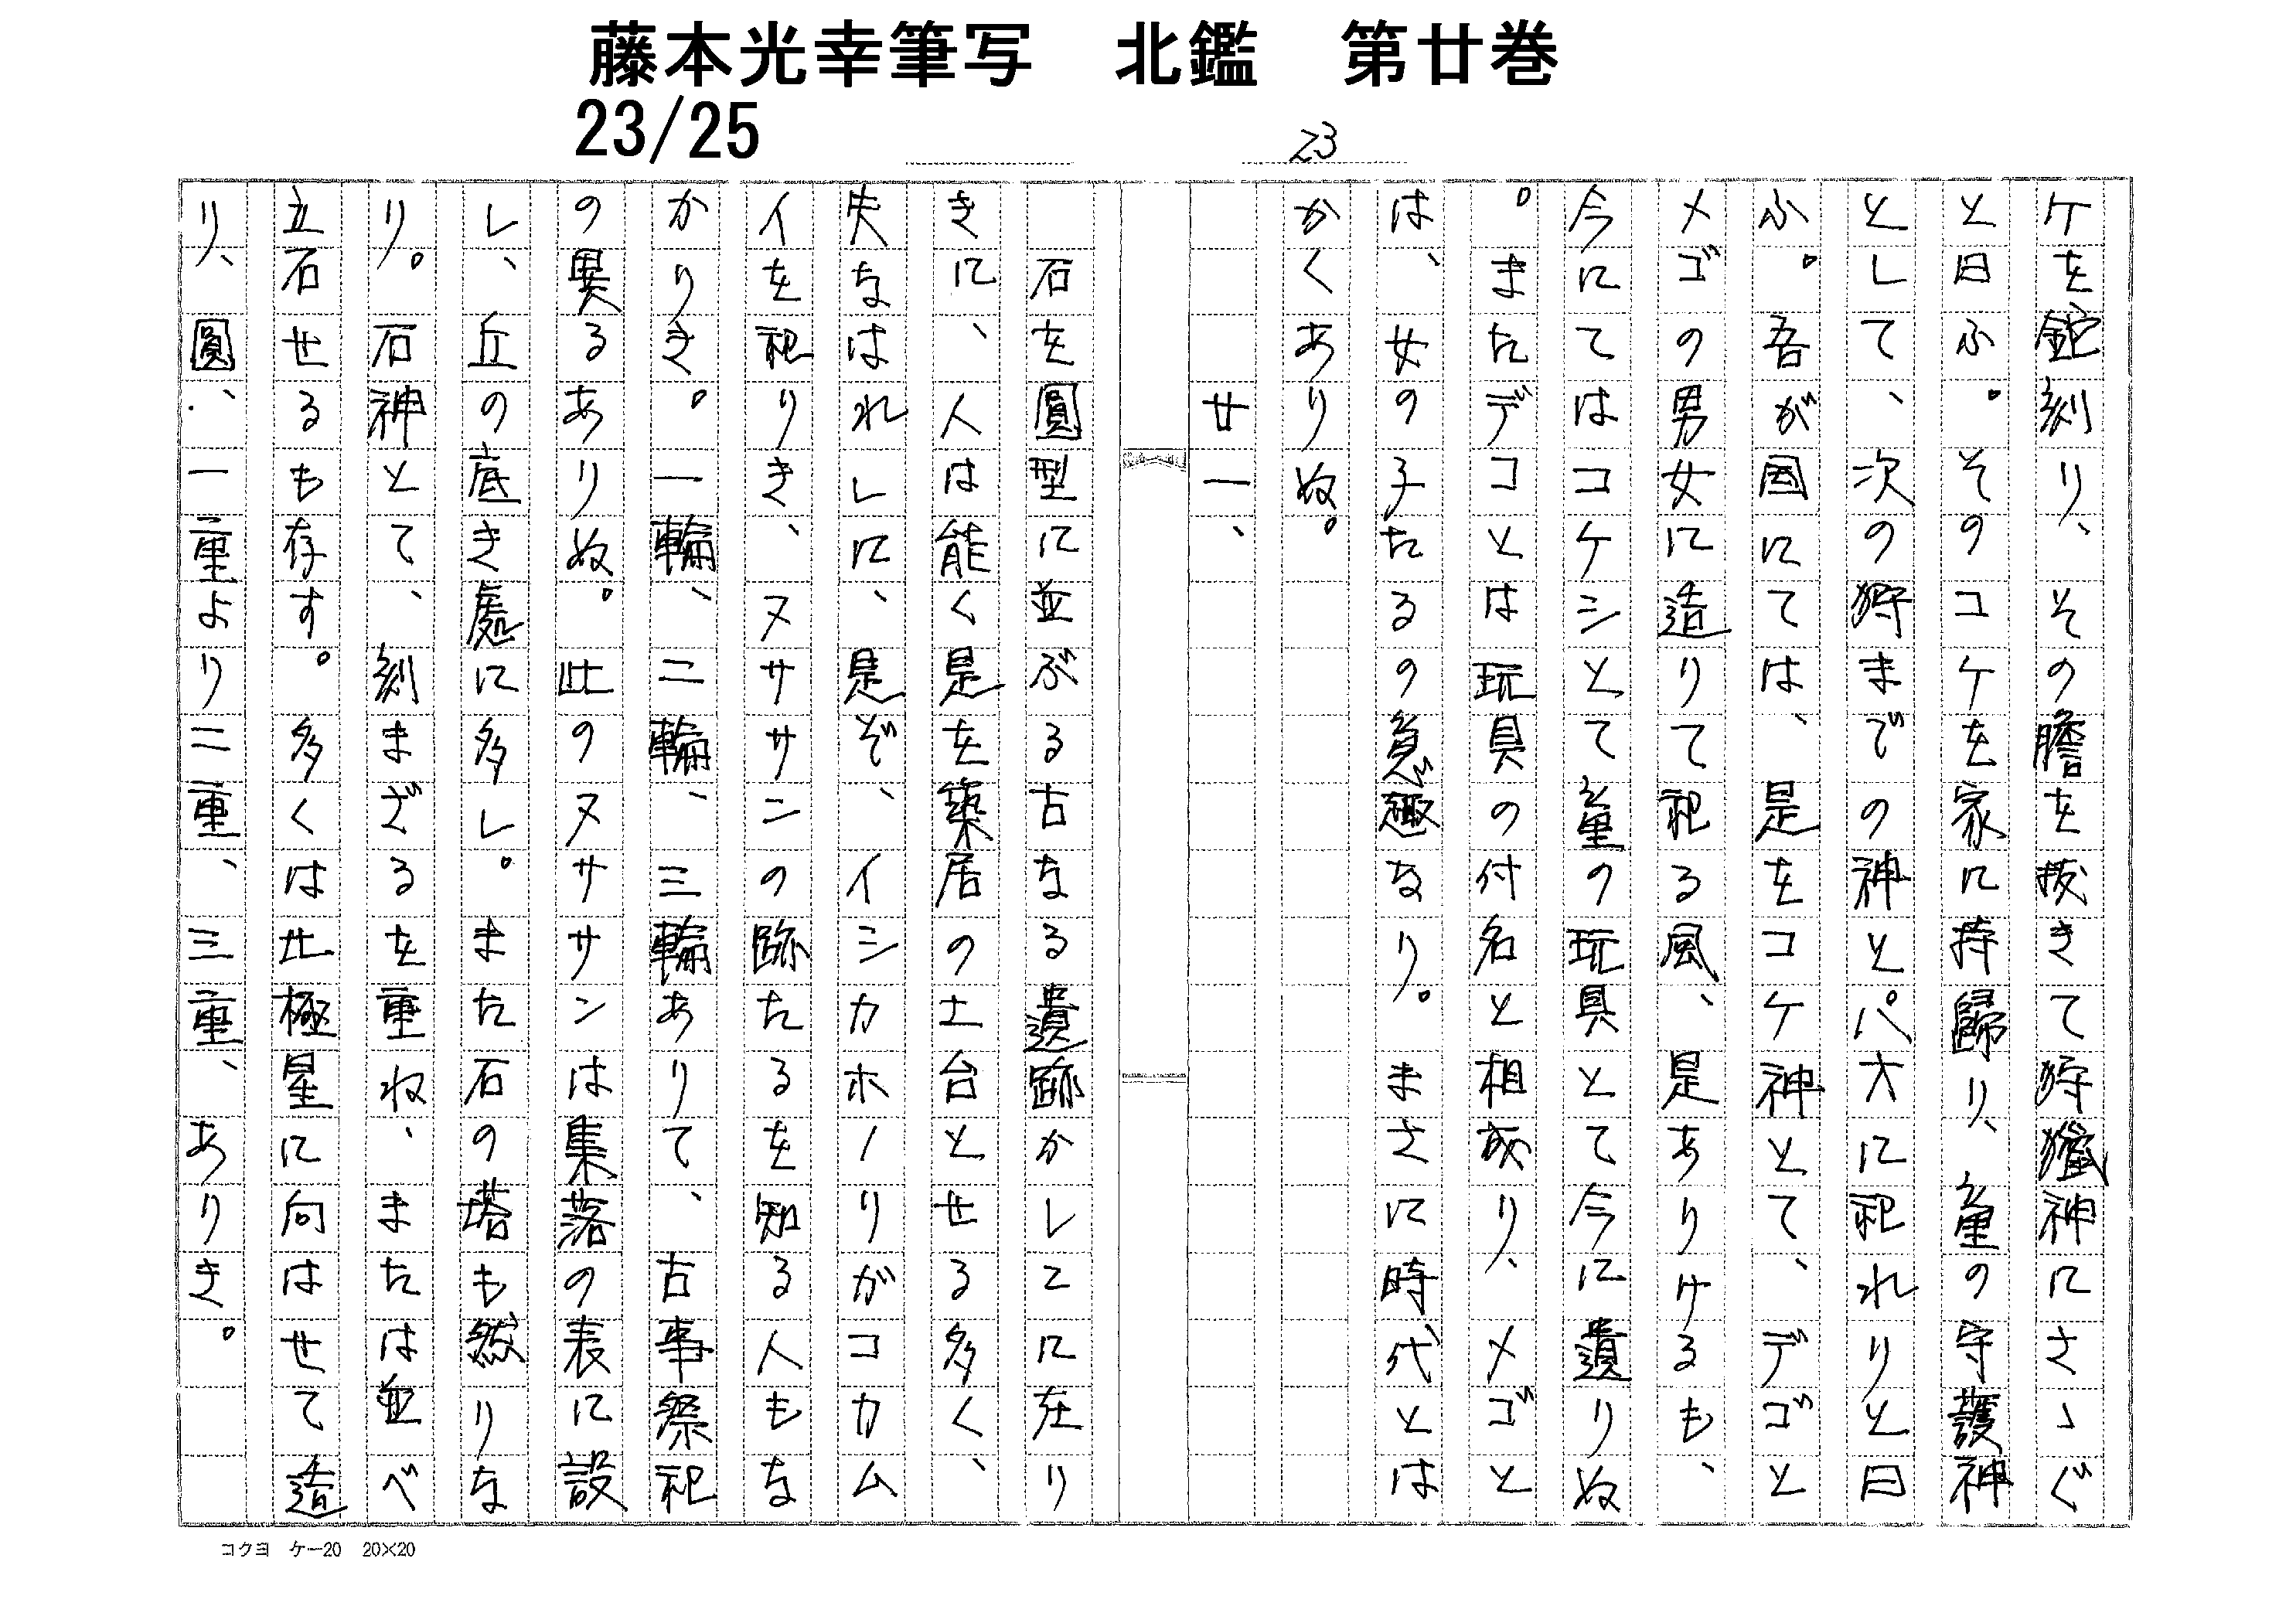 藤本光幸筆写　北鑑　第廿巻
23/25
23
ケを鉈刻り、その膽を抜きて狩猟神にさゝぐ
と曰ふ。そのコケを家に持歸り、童の守護神
として、次の狩までの神とパ大に祀れりと曰
ふ。吾が国にては、是をコケ神とて、デゴと
メゴの男女に造りて祀る風、是ありけるも、
今にてはコケシとて童の玩具とて今に遺りぬ
。またデコとは玩具の付名と相成り、メゴと
は、女の子たるの意趣なり。まさに時代とは
かくありぬ。
廿一、
石を圓型に並ぶる古なる遺跡かしこに在り
きに、人は能く是を築居の土台とせる多く、
失なはれしに、是ぞ、イシカホノリがコカム
イを祀りき、ヌササンの跡たるを知る人もな
かりき。一輪、二輪、三輪ありて、古事祭祀
の異るありぬ。此のヌササンは集落の表に設
し、丘の底き處に多し。また石の塔も然りな
り。石神とて、刻まざるを重ね、または並べ
立石せるも存す。多くは北極星に向はせて造
り、圓、一重より二重、三重、ありき。
コクヨ　ケー20　20×20